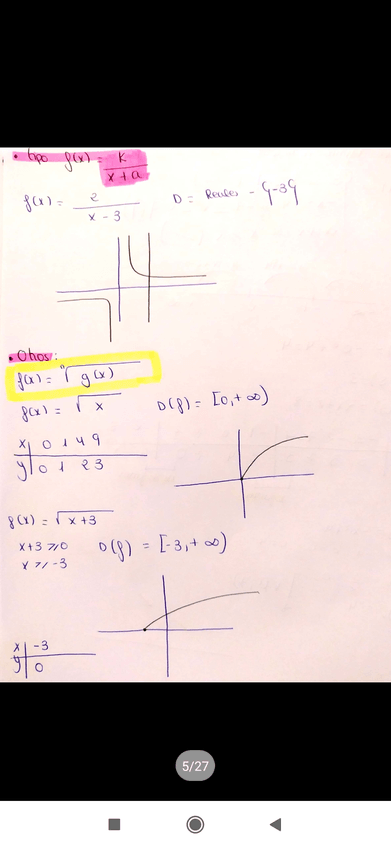 • tipo f(x) = k / x + a
f(x) = 2 / x - 3 D = Reales - {-3}
• Otros:
f(x) = ⁿ√g(x)
f(x) = √x D(f) = [0, +∞)
x | 0 1 4 9
y | 0 1 2 3
f(x) = √x+3
x+3 ≥ 0 D(f) = [-3, +∞)
x ≥ -3
x | -3
y | 0
5/27